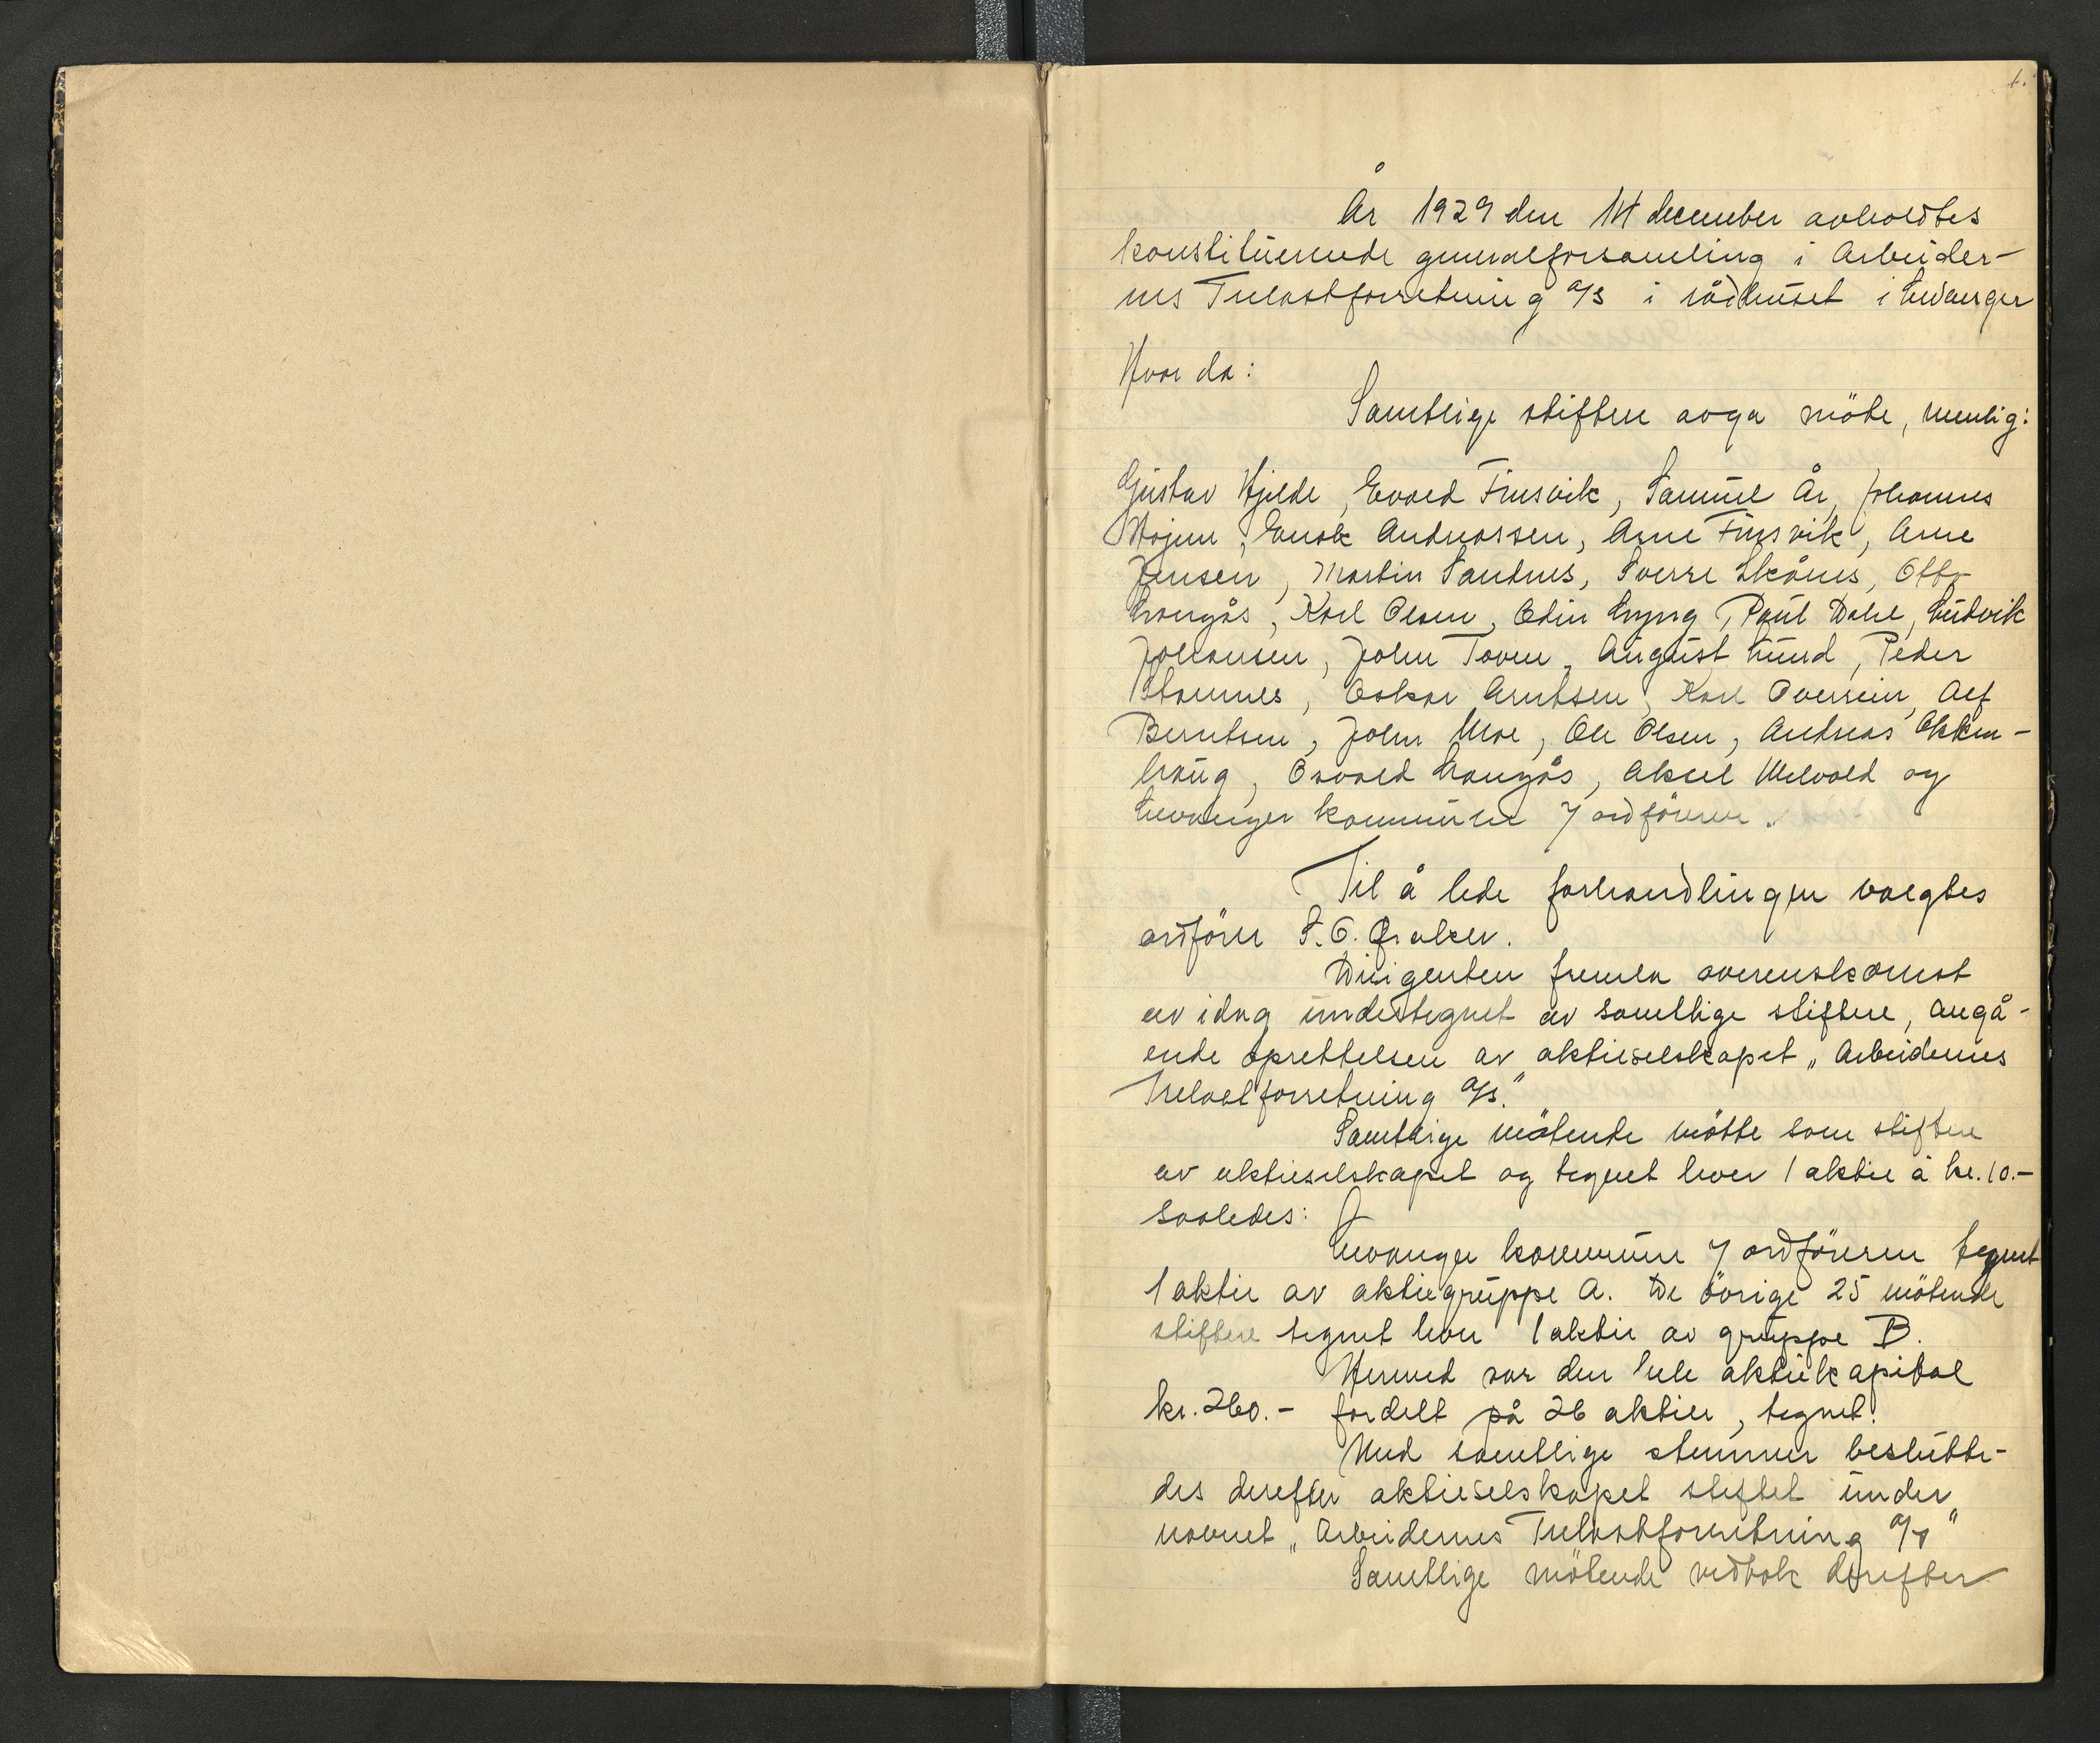 1.
År 1929 den 14 december avholdtes
konstituerende generalforsamling i Arbeider-
nes Trelastforretning a/s i rådhuset i Levanger
Hvor da:
Samtlige stiftere avga møte, nemlig:
Gustav Hjelde, Evald Finsvik, Samuel År, Johannes
Mojen, Enok Andreassen, Arne Finsvik, Arne
Jensen, Martin Sandnes, Sverre Skånes, Otto
Langås, Karl Olsen, Odin Lyng, Paul Dahl, Ludvik
Johansen, John Toven, August Lund, Peder
Stamnes, Oskar Arntsen, Karl Overrein, Alf
Berntsen, John Moe, Ole Olsen, Andreas Okken-
haug, Osvald Langås, Aksel Melvold og
Levanger kommune v/ ordføreren.
Til å lede forhandlingen valgtes
ordfører S. O.
Dirigenten fremla overenskomst
av idag undertegnet av samtlige stiftere, angå-
ende oprettelsen av aktieselskapet „Arbeidernes
Trelastforretning a/s."
Samtlige møtende møtte som stiftere
av aktieselskapet og tegnet hver 1 aktie à kr. 10.-
saaledes:
Levanger kommune v/ ordføreren tegnet
1 aktie av aktiegruppe A. De øvrige 25 møtende
stiftere tegnet hver 1 aktie av gruppe B.
Hermed var den hele aktiekapital
kr. 260.- fordelt på 26 aktier, tegnet.
Med samtlige stemmer beslutte-
des derefter aktieselskapet stiftet under
navnet „Arbeidernes Trelastforretning a/s"
Samtlige møtende vedtok derefter